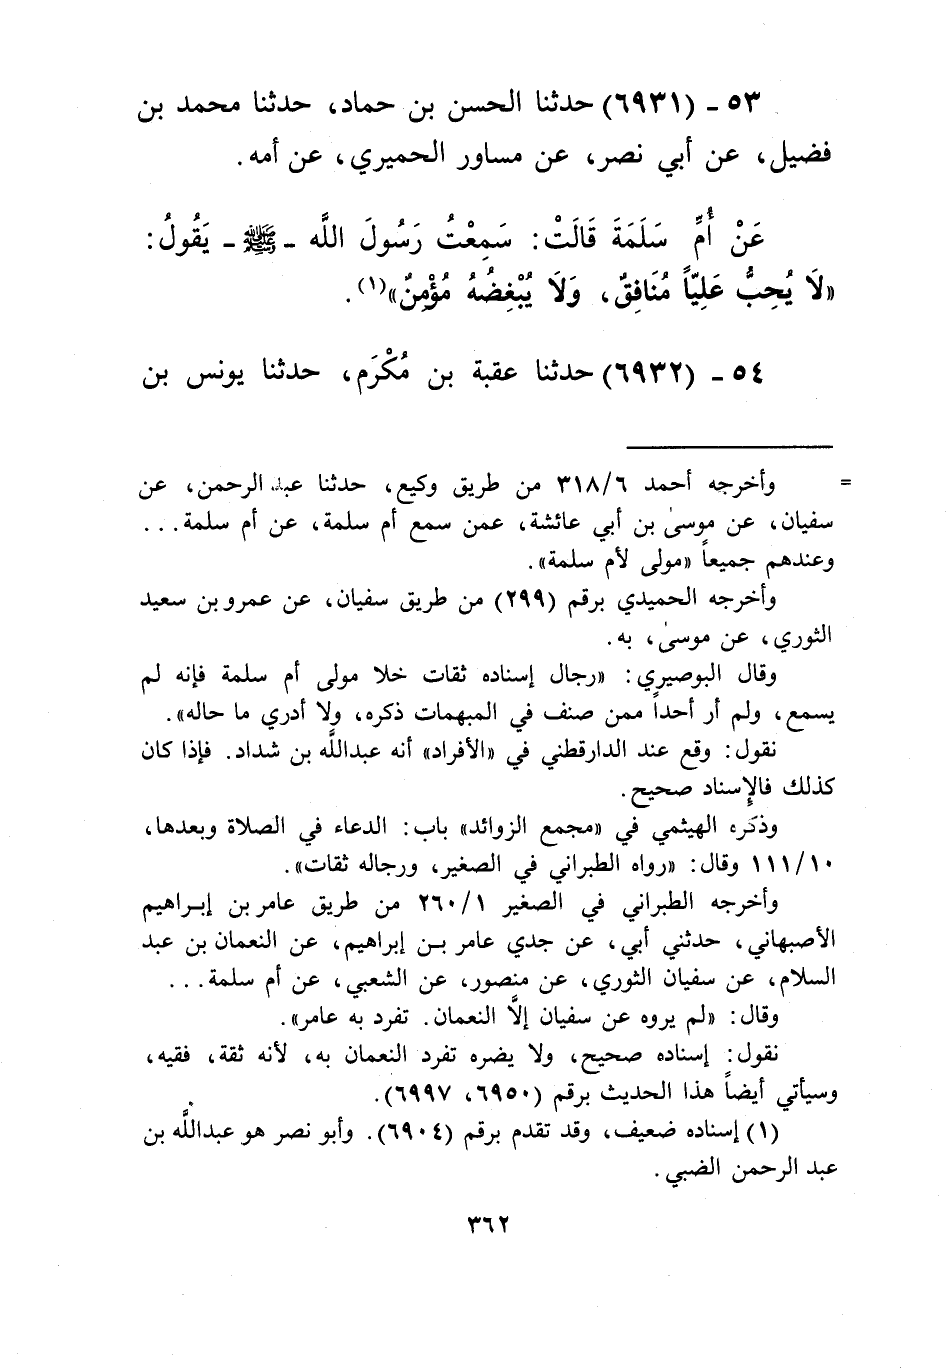 ٥٣ ـ (٦٩٣١) حدثنا الحسن بن حماد، حدثنا محمد بن
فضيل، عن أبي نصر، عن مساور الحميري، عن أمه.
عَنْ أُمِّ سَلَمَةَ قَالَتْ: سَمِعْتُ رَسُولَ اللَّه ـ ﷺ ـ يَقُولُ:
«لَا يُحِبُّ عَلِيّاً مُنَافِقٌ، وَلَا يُبْغِضُهُ مُؤْمِنٌ»(١).
٥٤ ـ (٦٩٣٢) حدثنا عقبة بن مُكْرَم، حدثنا يونس بن
= وأخرجه أحمد ٣١٨/٦ من طريق وكيع، حدثنا عبد الرحمن، عن
سفيان، عن موسىٰ بن أبي عائشة، عمن سمع أم سلمة، عن أم سلمة...
وعندهم جميعاً «مولى لأم سلمة».
وأخرجه الحميدي برقم (٢٩٩) من طريق سفيان، عن عمرو بن سعيد
الثوري، عن موسىٰ، به.
وقال البوصيري: «رجال إسناده ثقات خلا مولى أم سلمة فإنه لم
يسمع، ولم أر أحداً ممن صنف في المبهمات ذكره، ولا أدري ما حاله».
نقول: وقع عند الدارقطني في «الأفراد» أنه عبداللَّه بن شداد. فإذا كان
كذلك فالإسناد صحيح.
وذكره الهيثمي في «مجمع الزوائد» باب: الدعاء في الصلاة وبعدها،
١١١/١٠ وقال: «رواه الطبراني في الصغير، ورجاله ثقات».
وأخرجه الطبراني في الصغير ٢٦٠/١ من طريق عامر بن إبراهيم
الأصبهاني، حدثني أبي، عن جدي عامر بن إبراهيم، عن النعمان بن عبد
السلام، عن سفيان الثوري، عن منصور، عن الشعبي، عن أم سلمة...
وقال: «لم يروه عن سفيان إلَّا النعمان. تفرد به عامر».
نقول: إسناده صحيح، ولا يضره تفرد النعمان به، لأنه ثقة، فقيه،
وسيأتي أيضاً هذا الحديث برقم (٦٩٥٠، ٦٩٩٧).
(١) إسناده ضعيف، وقد تقدم برقم (٦٩٠٤). وأبو نصر هو عبداللَّه بن
عبد الرحمن الضبي.
٣٦٢